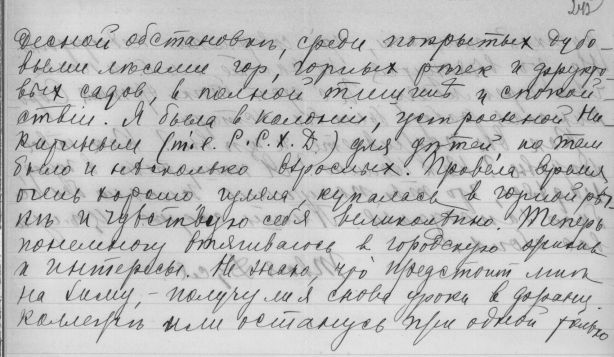 242
десной обстановкѣ, среди покрытых дубо-
выми лѣсами гор, горных рѣчек и фрукто-
вых садов, в полной тишинѣ и спокой-
ствіи. Я была в колоніи, устроенной Ни-
китиным (т.е. Р.С.Х.Д.) для дѣтей но там
было и нѣсколько взрослых. Провела время
очень хорошо, гуляла, купалась в горной рѣч-
кѣ и чувствую себя великолѣпно. Теперь
понемногу втягиваюсь в городскую жизнь
и интересы. Не знаю что предстоит мнѣ
на зиму, - получу ли я снова уроки в
коллежѣ или останусь при одной только